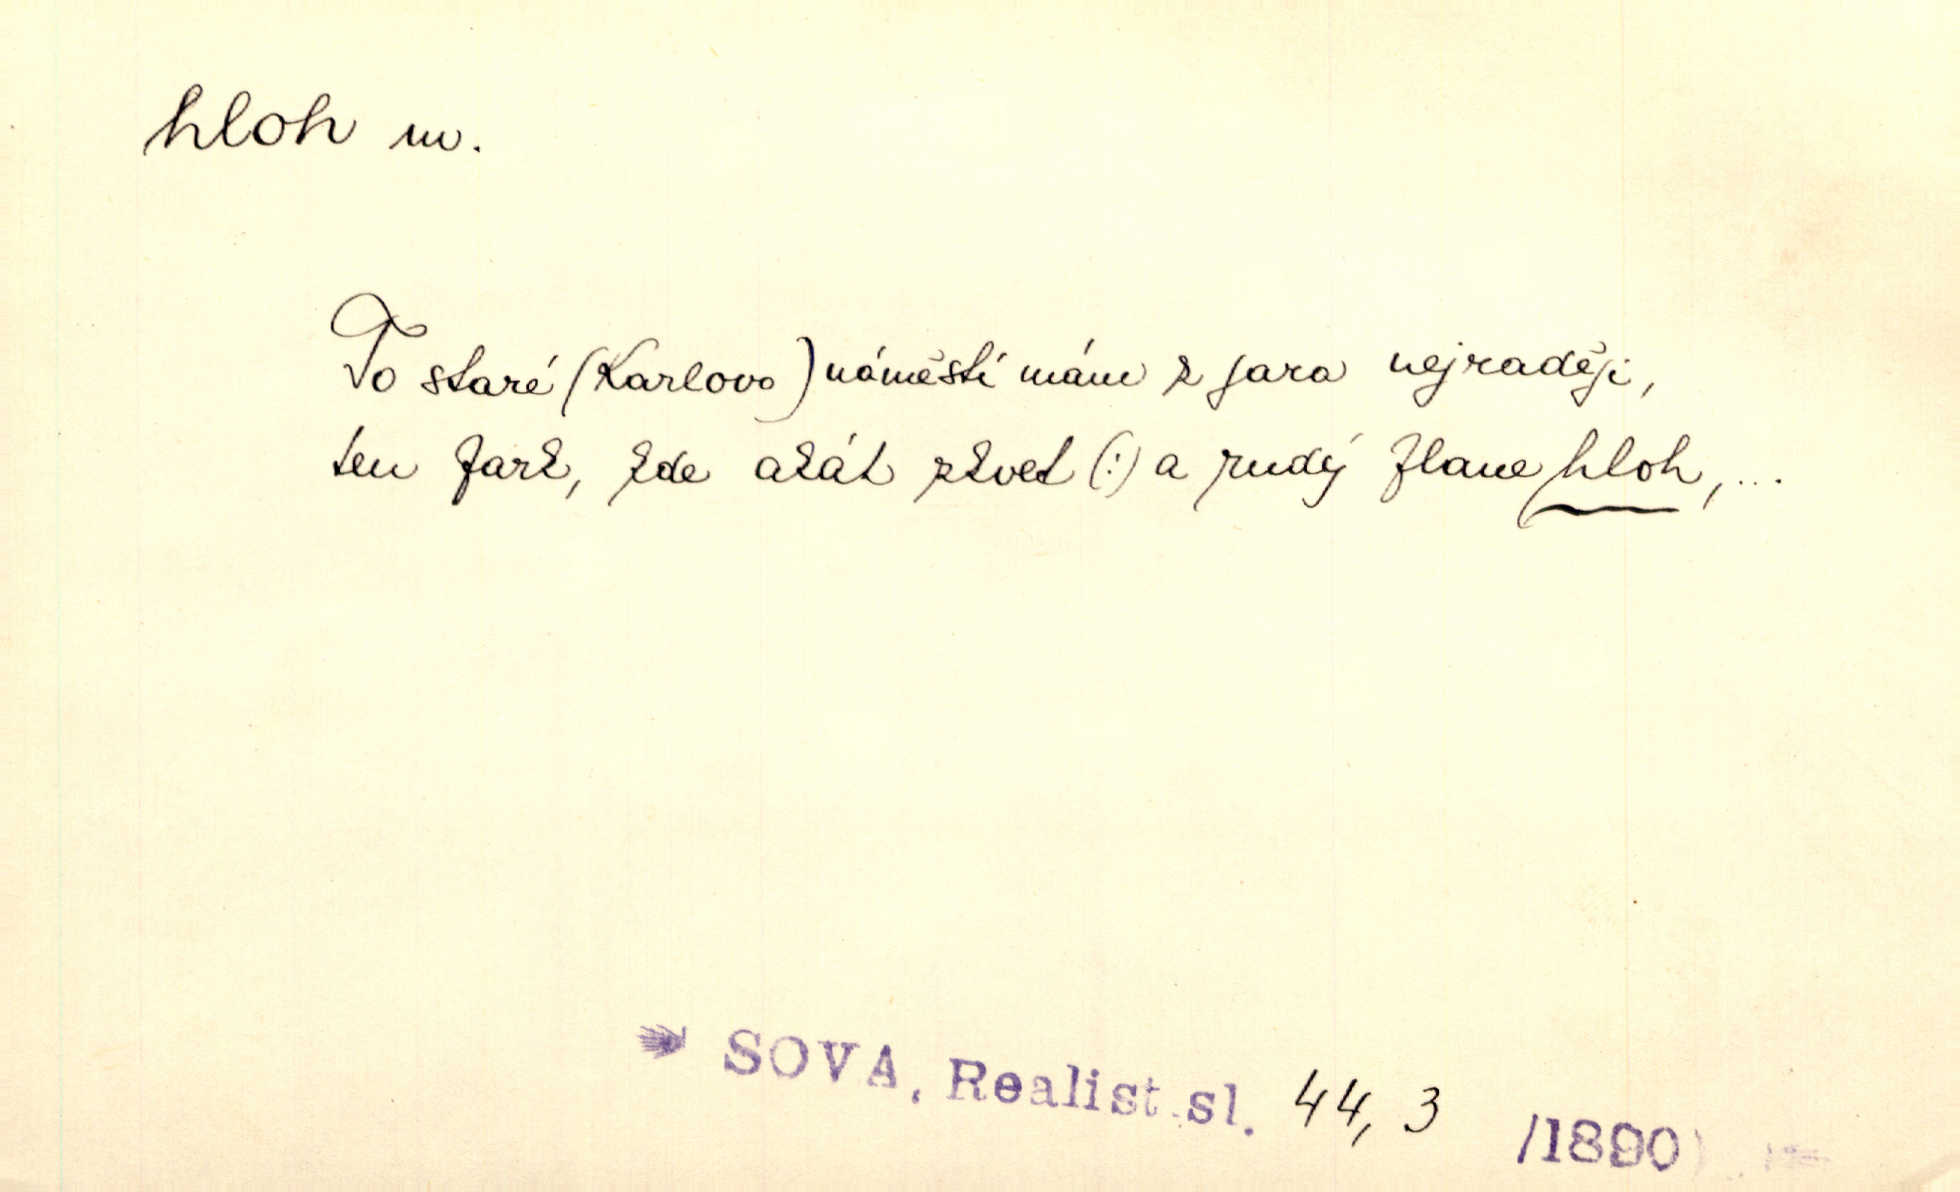 hloh m.
To staré (Karlovo) náměstí mám z jara nejraději,
ten park, kde akát zkvet (:) a rudý plane hloh, ...
SOVA, Realist. sl. 44, 3 /1890)